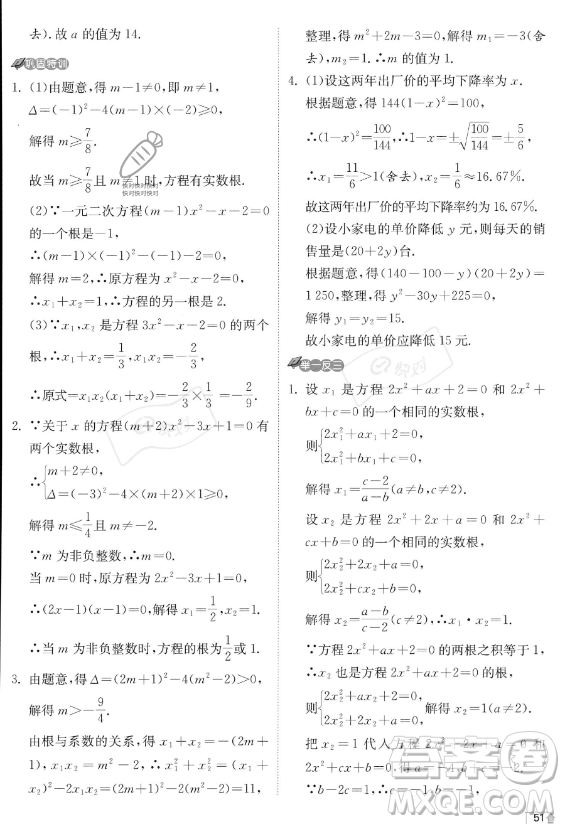 去).故 a 的值为 14.
巩固特训
1. (1)由题意,得 m-1≠0,即 m≠1,
Δ=(-1)²-4(m-1)×(-2)≥0,
解得 m≥7/8.
故当 m≥7/8且 m≠1 时,方程有实数根.
(2)∵一元二次方程(m-1)x²-x-2=0
的一个根是-1,
∴(m-1)×(-1)²-(-1)-2=0,
解得 m=2,∴原方程为 x²-x-2=0,
∴x₁+x₂=1,∴方程的另一根是 2.
(3)∵x₁,x₂ 是方程 3x²-x-2=0 的两个
根,∴x₁+x₂=1/3,x₁x₂=-2/3,
∴原式=x₁x₂(x₁+x₂)=-2/3×1/3=-2/9.
2. ∵关于 x 的方程(m+2)x²-3x+1=0 有
两个实数根,
∴{m+2≠0,
Δ=(-3)²-4×(m+2)×1≥0,
解得 m≤1/4且 m≠-2.
∵m 为非负整数,∴m=0.
当 m=0 时,原方程为 2x²-3x+1=0,
∴(2x-1)(x-1)=0,解得 x₁=1/2,x₂=1.
∴当 m 为非负整数时,方程的根为1/2或 1.
3. 由题意,得 Δ=(2m+1)²-4(m²-2)>0,
解得 m>-9/4.
由根与系数的关系,得 x₁+x₂=-(2m+
1),x₁x₂=m²-2,∴x₁²+x₂²=(x₁+
x₂)²-2x₁x₂=(2m+1)²-2(m²-2)=11,
整理,得 m²+2m-3=0,解得 m₁=-3(舍
去),m₂=1.∴m 的值为 1.
4. (1)设这两年出厂价的平均下降率为 x.
根据题意,得 144(1-x)²=100,
∴(1-x)²=100/144,∴1-x=±√(100/144)=±5/6,
∴x₁=11/6>1(舍去),x₂=1/6≈16.67%.
故这两年出厂价的平均下降率约为 16.67%.
(2)设小家电的单价降低 y 元,则每天的销
售量是(20+2y)台.
根据题意,得(140-100-y)(20+2y)=
1 250,整理,得 y²-30y+225=0,
解得 y₁=y₂=15.
故小家电的单价应降低 15 元.
举一反三
1. 设 x₁ 是方程 2x²+ax+2=0 和 2x²+
bx+c=0 的一个相同的实数根,
则{2x₁²+ax₁+2=0,
2x₁²+bx₁+c=0,
解得 x₁=(c-2)/(a-b)(a≠b).
设 x₂ 是方程 2x²+2x+a=0 和 2x²+
cx+b=0 的一个相同的实数根,
则{2x₂²+2x₂+a=0,
2x₂²+cx₂+b=0,
解得 x₂=(a-b)/(c-2)(c≠2),∴x₁·x₂=1.
∵方程 2x²+ax+2=0 的两根之积等于 1,
∴x₂ 也是方程 2x²+ax+2=0 的根,
则{2x₂²+2x₂+a=0,
2x₂²+ax₂+2=0,解得 x₂=1(a≠2).
把 x₂=1 代入方程 2x²+2x+a=0 和
∵b-c=1,∴
快对快对快对
快对快对快对
快对
快对
作业答案
MXQE.COM
51